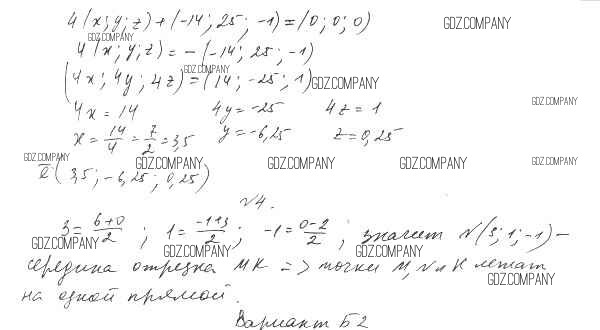 4(x; y; z) + (-14; 25; -1) = (0; 0; 0)
GDZ.COMPANY
GDZ.COMPANY
4(x; y; z) = -(-14; 25; -1)
GDZ.COMPANY
(4x; 4y; 4z) = (14; -25; 1)
GDZ.COMPANY
4x = 14 4y = -25 4z = 1
GDZ.COMPANY
x = 14/4 = 7/2 = 3,5 y = -6,25 z = 0,25
GDZ.COMPANY GDZ.COMPANY GDZ.COMPANY GDZ.COMPANY GDZ.COMPANY
(3,5; -6,25; 0,25)
№4.
3 = 6+0/2; 1 = -1+3/2; -1 = 0-2/2; значит N(3; 1; -1) –
GDZ.COMPANY GDZ.COMPANY GDZ.COMPANY
середина отрезка MK => точки M, N и K лежат
GDZ.COMPANY
на одной прямой.
Вариант Б2